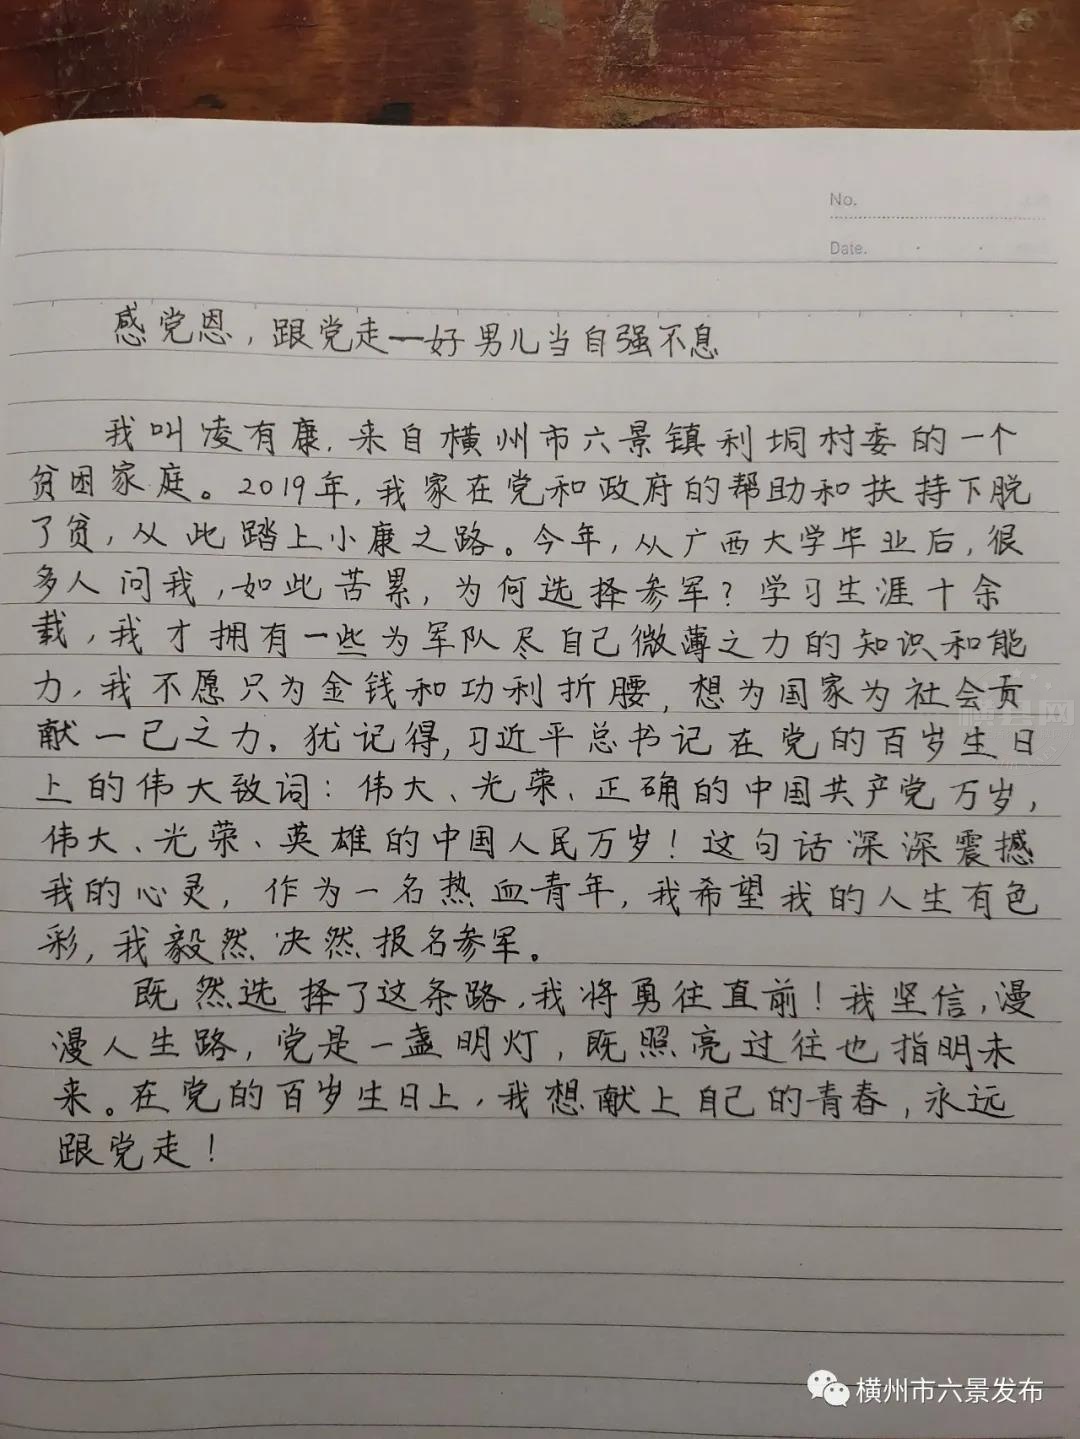 No.
Date.
感党恩，跟党走一好男儿当自强不息
我叫凌有康，来自横州市六景镇利垌村委的一个
贫困家庭。2019年，我家在党和政府的帮助和扶持下脱
了贫，从此踏上小康之路。今年，从广西大学毕业后，很
多人问我，如此苦累，为何选择参军？学习生涯十余
载，我才拥有一些为军队尽自己微薄之力的知识和能
力，我不愿只为金钱和功利折腰，想为国家为社会贡
献一己之力。犹记得，习近平总书记在党的百岁生日
上的伟大致词：伟大、光荣、正确的中国共产党万岁，
伟大、光荣、英雄的中国人民万岁！这句话深深震撼
我的心灵，作为一名热血青年，我希望我的人生有色
彩，我毅然决然报名参军。
既然选择了这条路，我将勇往直前！我坚信，漫
漫人生路，党是一盏明灯，既照亮过往也指明未
来。在党的百岁生日上，我想献上自己的青春，永远
跟党走！
横县网
横州市六景发布